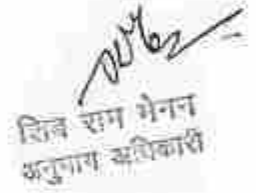 शिव राम मेनन
अनुभाग अधिकारी